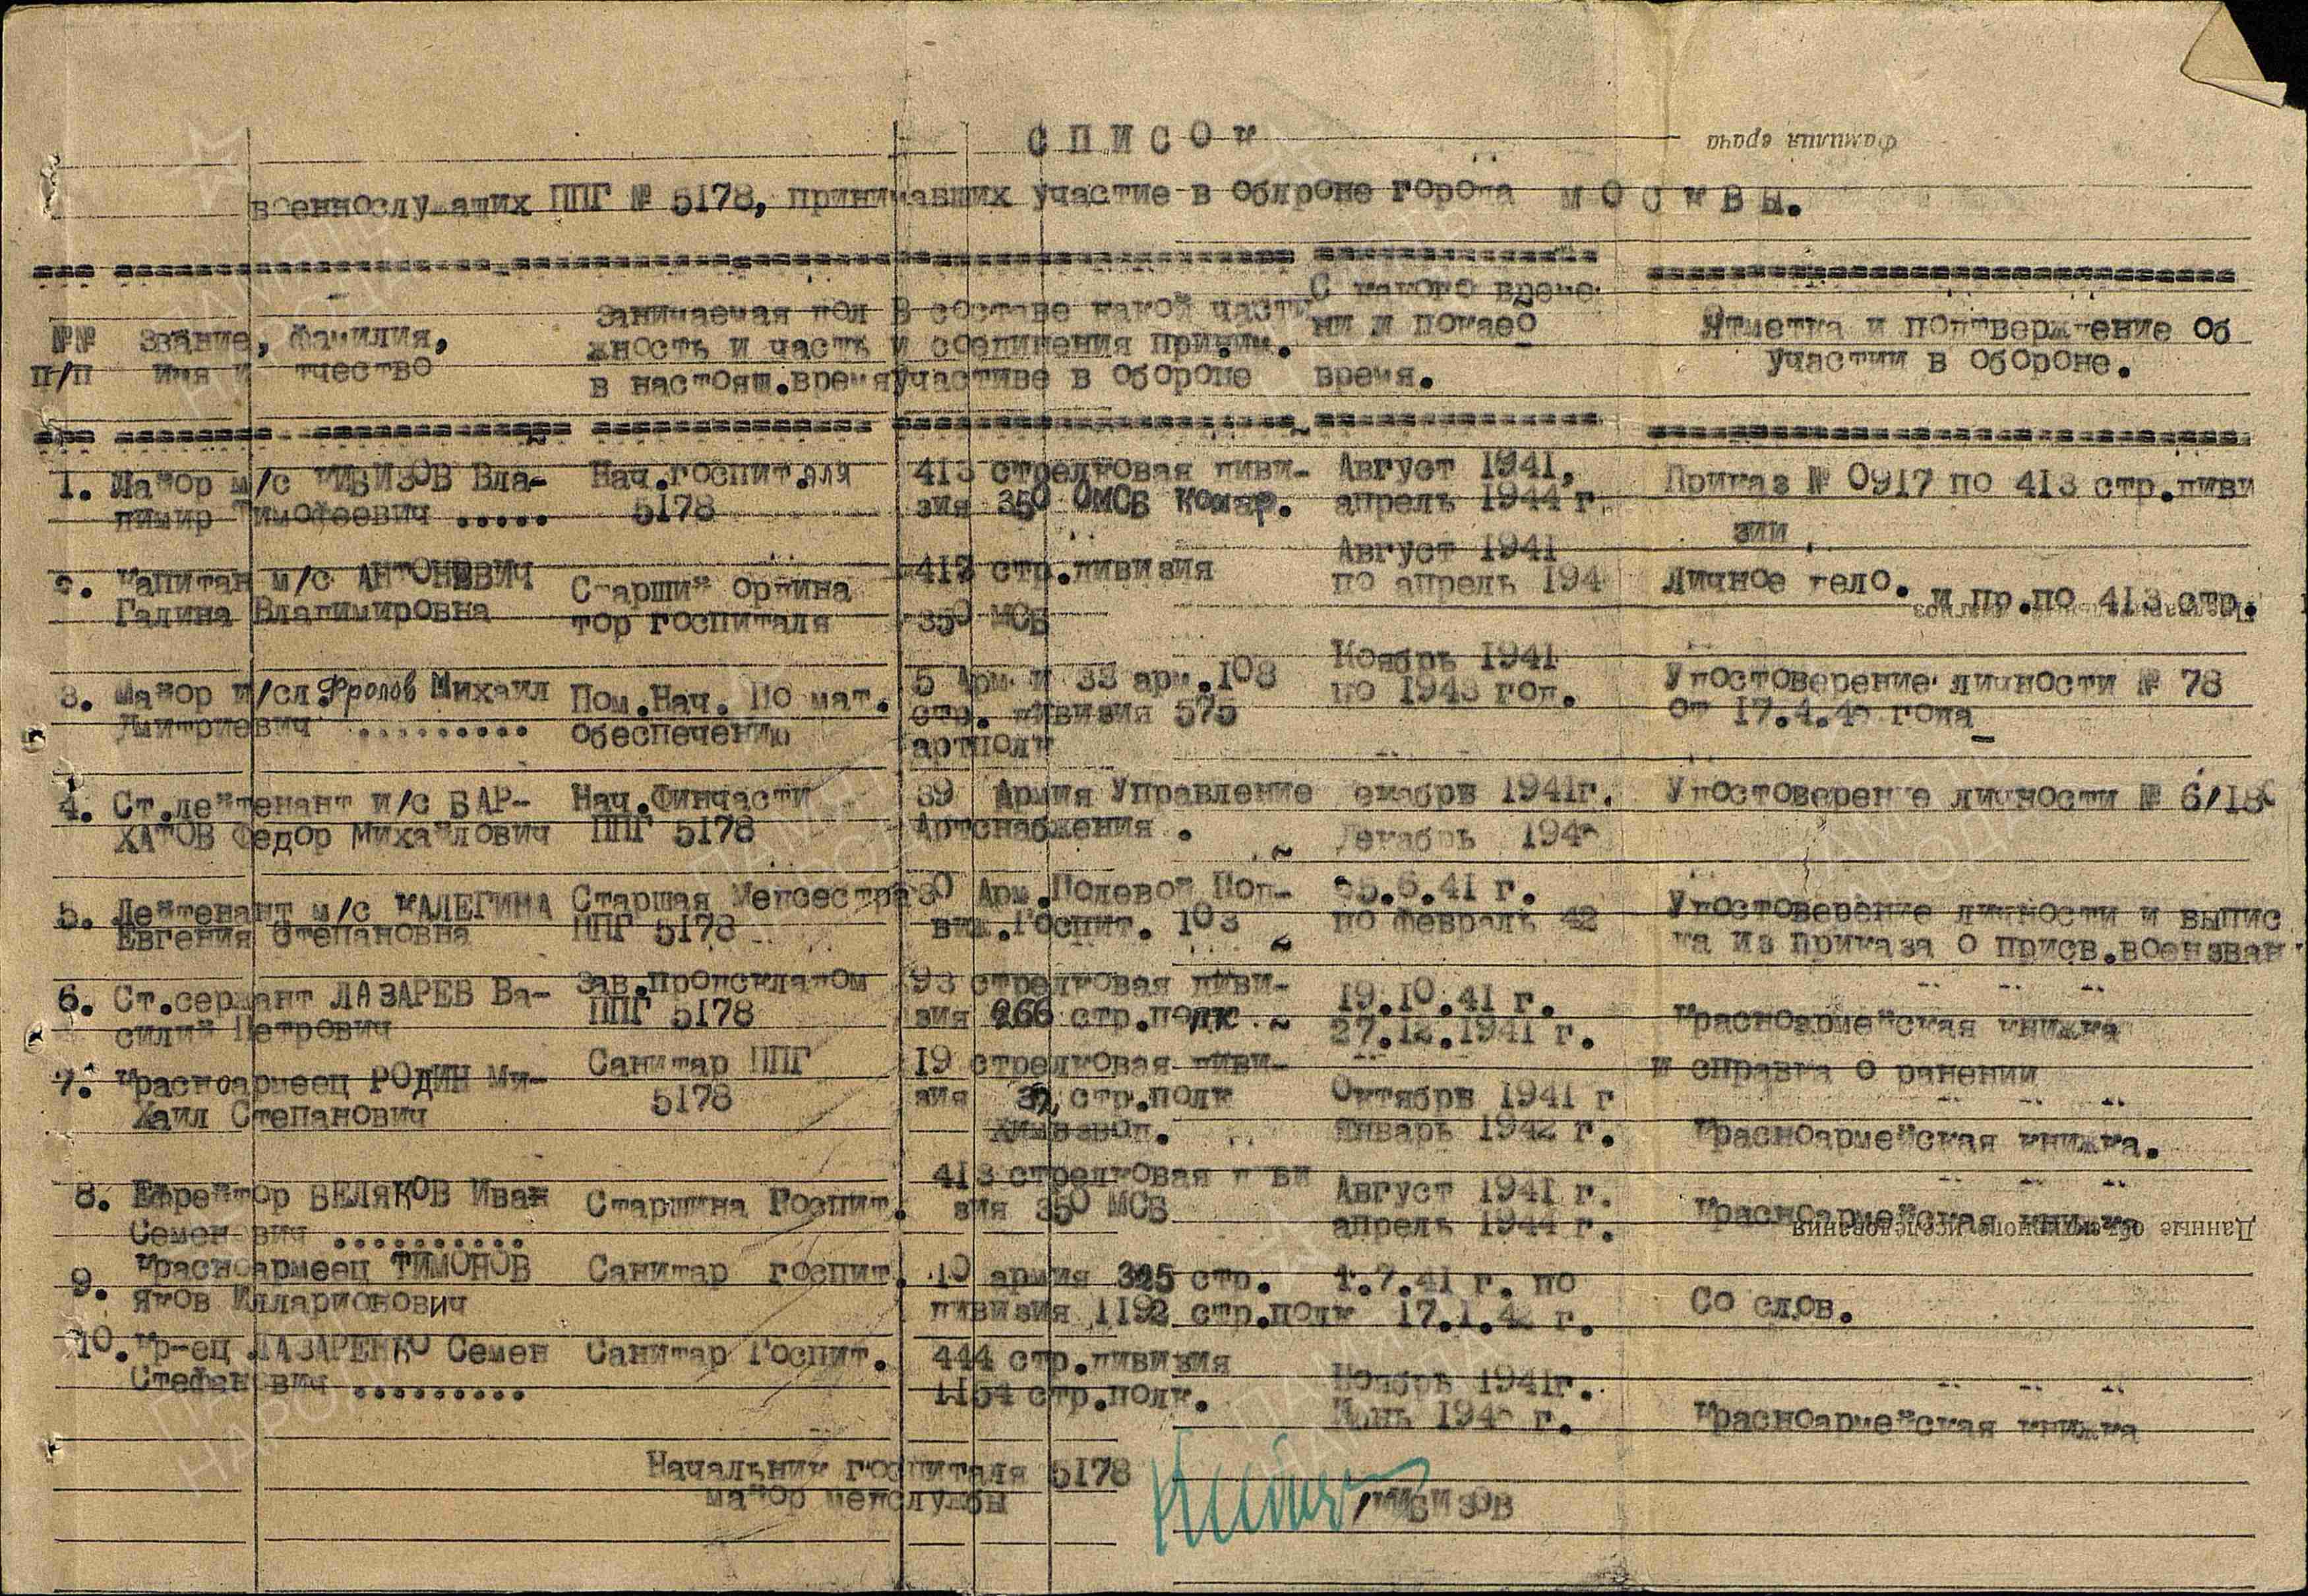 СПИСОК
военнослужащих ППГ № 5178, принимавших участие в обороне города МОСКВЫ.
№№ п/п
Звание, фамилия,
имя и отчество
Занимаемая дол
жность и часть
в настоящ.время
В составе какой части
и соединения приним.
участиве в обороне
С какого време
ни и покаео
время.
Отметка и подтверждение об
участии в обороне.
1. Майор м/с КИБИЗОВ Вла-
димир Тимофеевич .....
Нач.госпиталя
5178
413 стрелковая диви-
зия 350 ОМСБ Комар.
Август 1941,
апрель 1944 г.
Приказ № 0917 по 413 стр.диви
зии.
2. Капитан м/с АНТОНЕВИЧ
Галина Владимировна
Старший ордина
тор госпиталя
412 стр.дивизия
350 МСБ
Август 1941
по апрель 194
Личное дело. и пр.по 413 стр.
3. Майор и/сл. Фролов Михаил
Дмитриевич .........
Пом.Нач. По мат.
обеспечению
5 Арм и 33 арм.108
стр. дивизия 575
артполк
Ноябрь 1941
по 1943 год.
Удостоверение личности № 78
от 17.4.4 года
4. Ст.лейтенант и/с БАР-
ХАТОВ Федор Михайлович
Нач.Финчасти
ППГ 5178
39 Армия Управление
Артснабжения.
екабрь 1941г.
Декабрь 194
Удостоверение личности № 6/18
5. Лейтенант м/с КАЛЕГИНА
Евгения Степановна
Старшая Медсестра
ППГ 5178
30 Арм.Полевой Под-
виж.Госпит. 103
5.6.41 г.
по февраль 42
Удостоверение личности и выпис
ка из приказа о присв.воензван
6. Ст.сержант ЛАЗАРЕВ Ва-
силий Петрович
Зав.продскладом
ППГ 5178
93 стрелковая диви-
зия 266 стр.полк
19.10.41 г.
27.12.1941 г.
Красноармейская книжка
и справка о ранении
7. Красноармеец РОДИН Ми-
Хаил Степанович
Санитар ППГ
5178
19 стрелковая диви-
зия 32 стр.полк
Химвзвод.
Октябрь 1941 г
январь 1942 г.
Красноармейская книжка.
8. Ефрейтор БЕЛЯКОВ Иван
Семенович ..........
Старшина Госпит.
413 стрелковая д ви
зия 350 МСБ
Август 1941 г.
апрель 1944 г.
Красноармейская книжка
9. Красноармеец ТИМОНОВ
Яков Илларионович
Санитар госпит.
10 армия 325 стр.
дивизия 1192 стр.полк
1.7.41 г. по
17.1.42 г.
Со слов.
10. Кр-ец ЛАЗАРЕНКО Семен
Стефанович .........
Санитар Госпит.
444 стр.дивизия
1154 стр.полк.
Ноябрь 1941г.
Июнь 194 г.
Красноармейская книжка
Начальник госпиталя 5178
майор медслужбы
/КИБИЗОВ
Фамилия врача
Данные объективного исследования
ПАМЯТЬ
НАРОДА